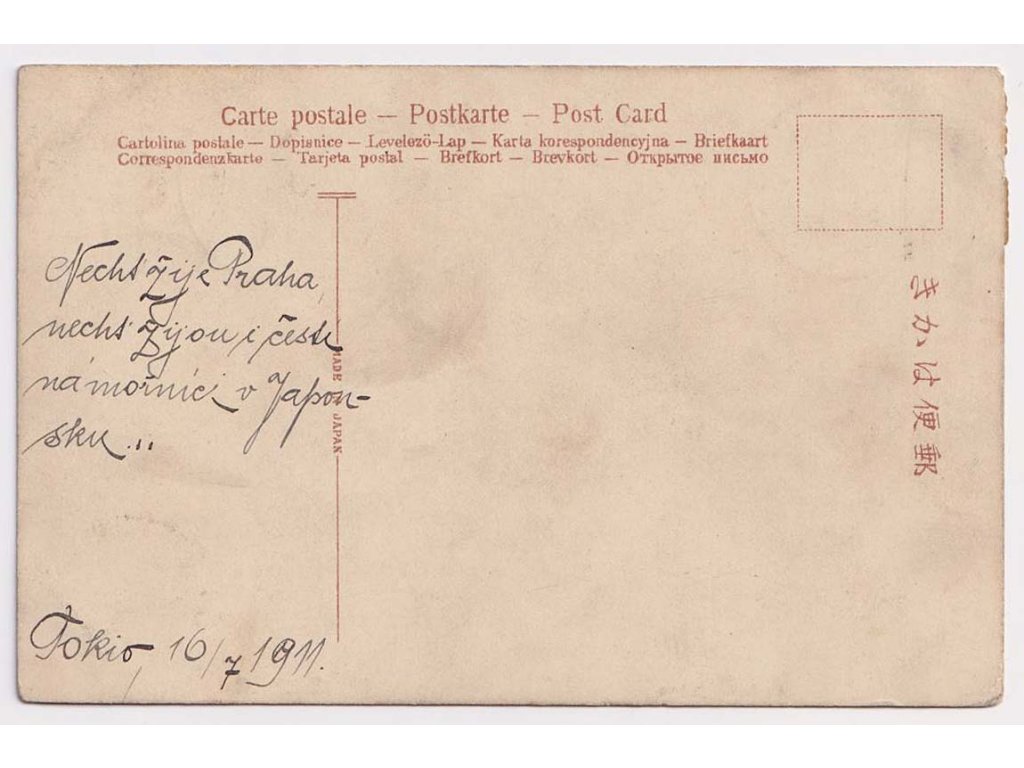 Carte postale — Postkarte — Post Card
Cartolina postale — Dopisnice — Levelezö-Lap — Karta korespondencyjna — Briefkaart
Correspondenzkarte — Tarjeta postal — Brefkort — Brevkort — Открытое письмо
Nechť žije Praha,
nechť žijou i čeští
námořníci v Japon-
sku...
MADE IN JAPAN
Tokio, 16/7 1911.
きかは便郵